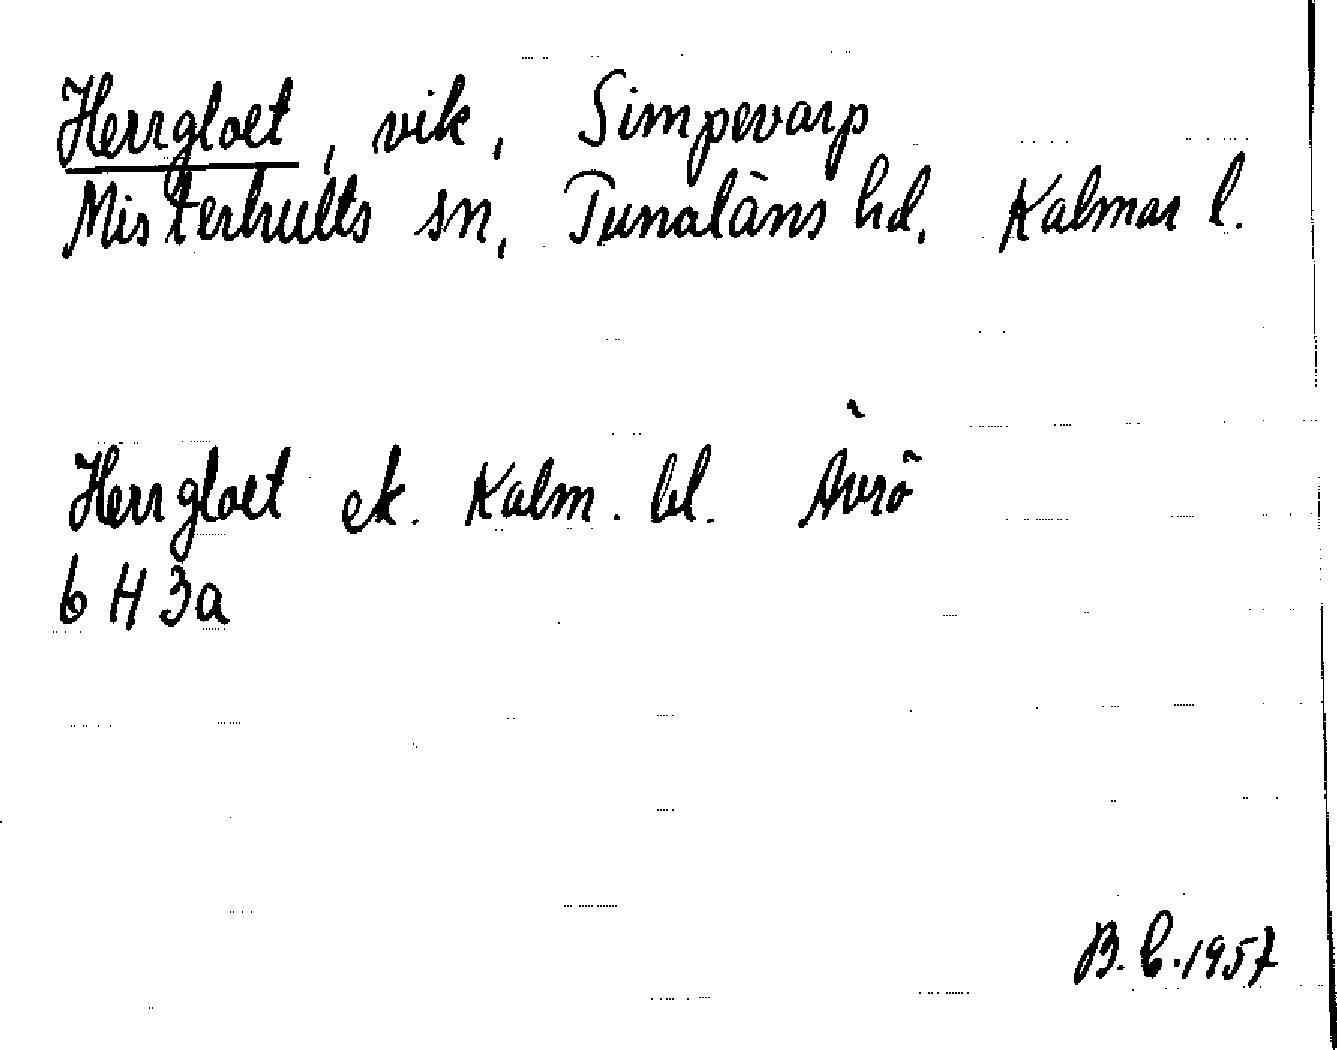 Herrgloet, vik, Simpevarp
Misterhults sn, Tunaläns hd, Kalmar l.
Herrgloet ek. Kalm. bl. Ävrö
6 H 3a
B. E. 1957